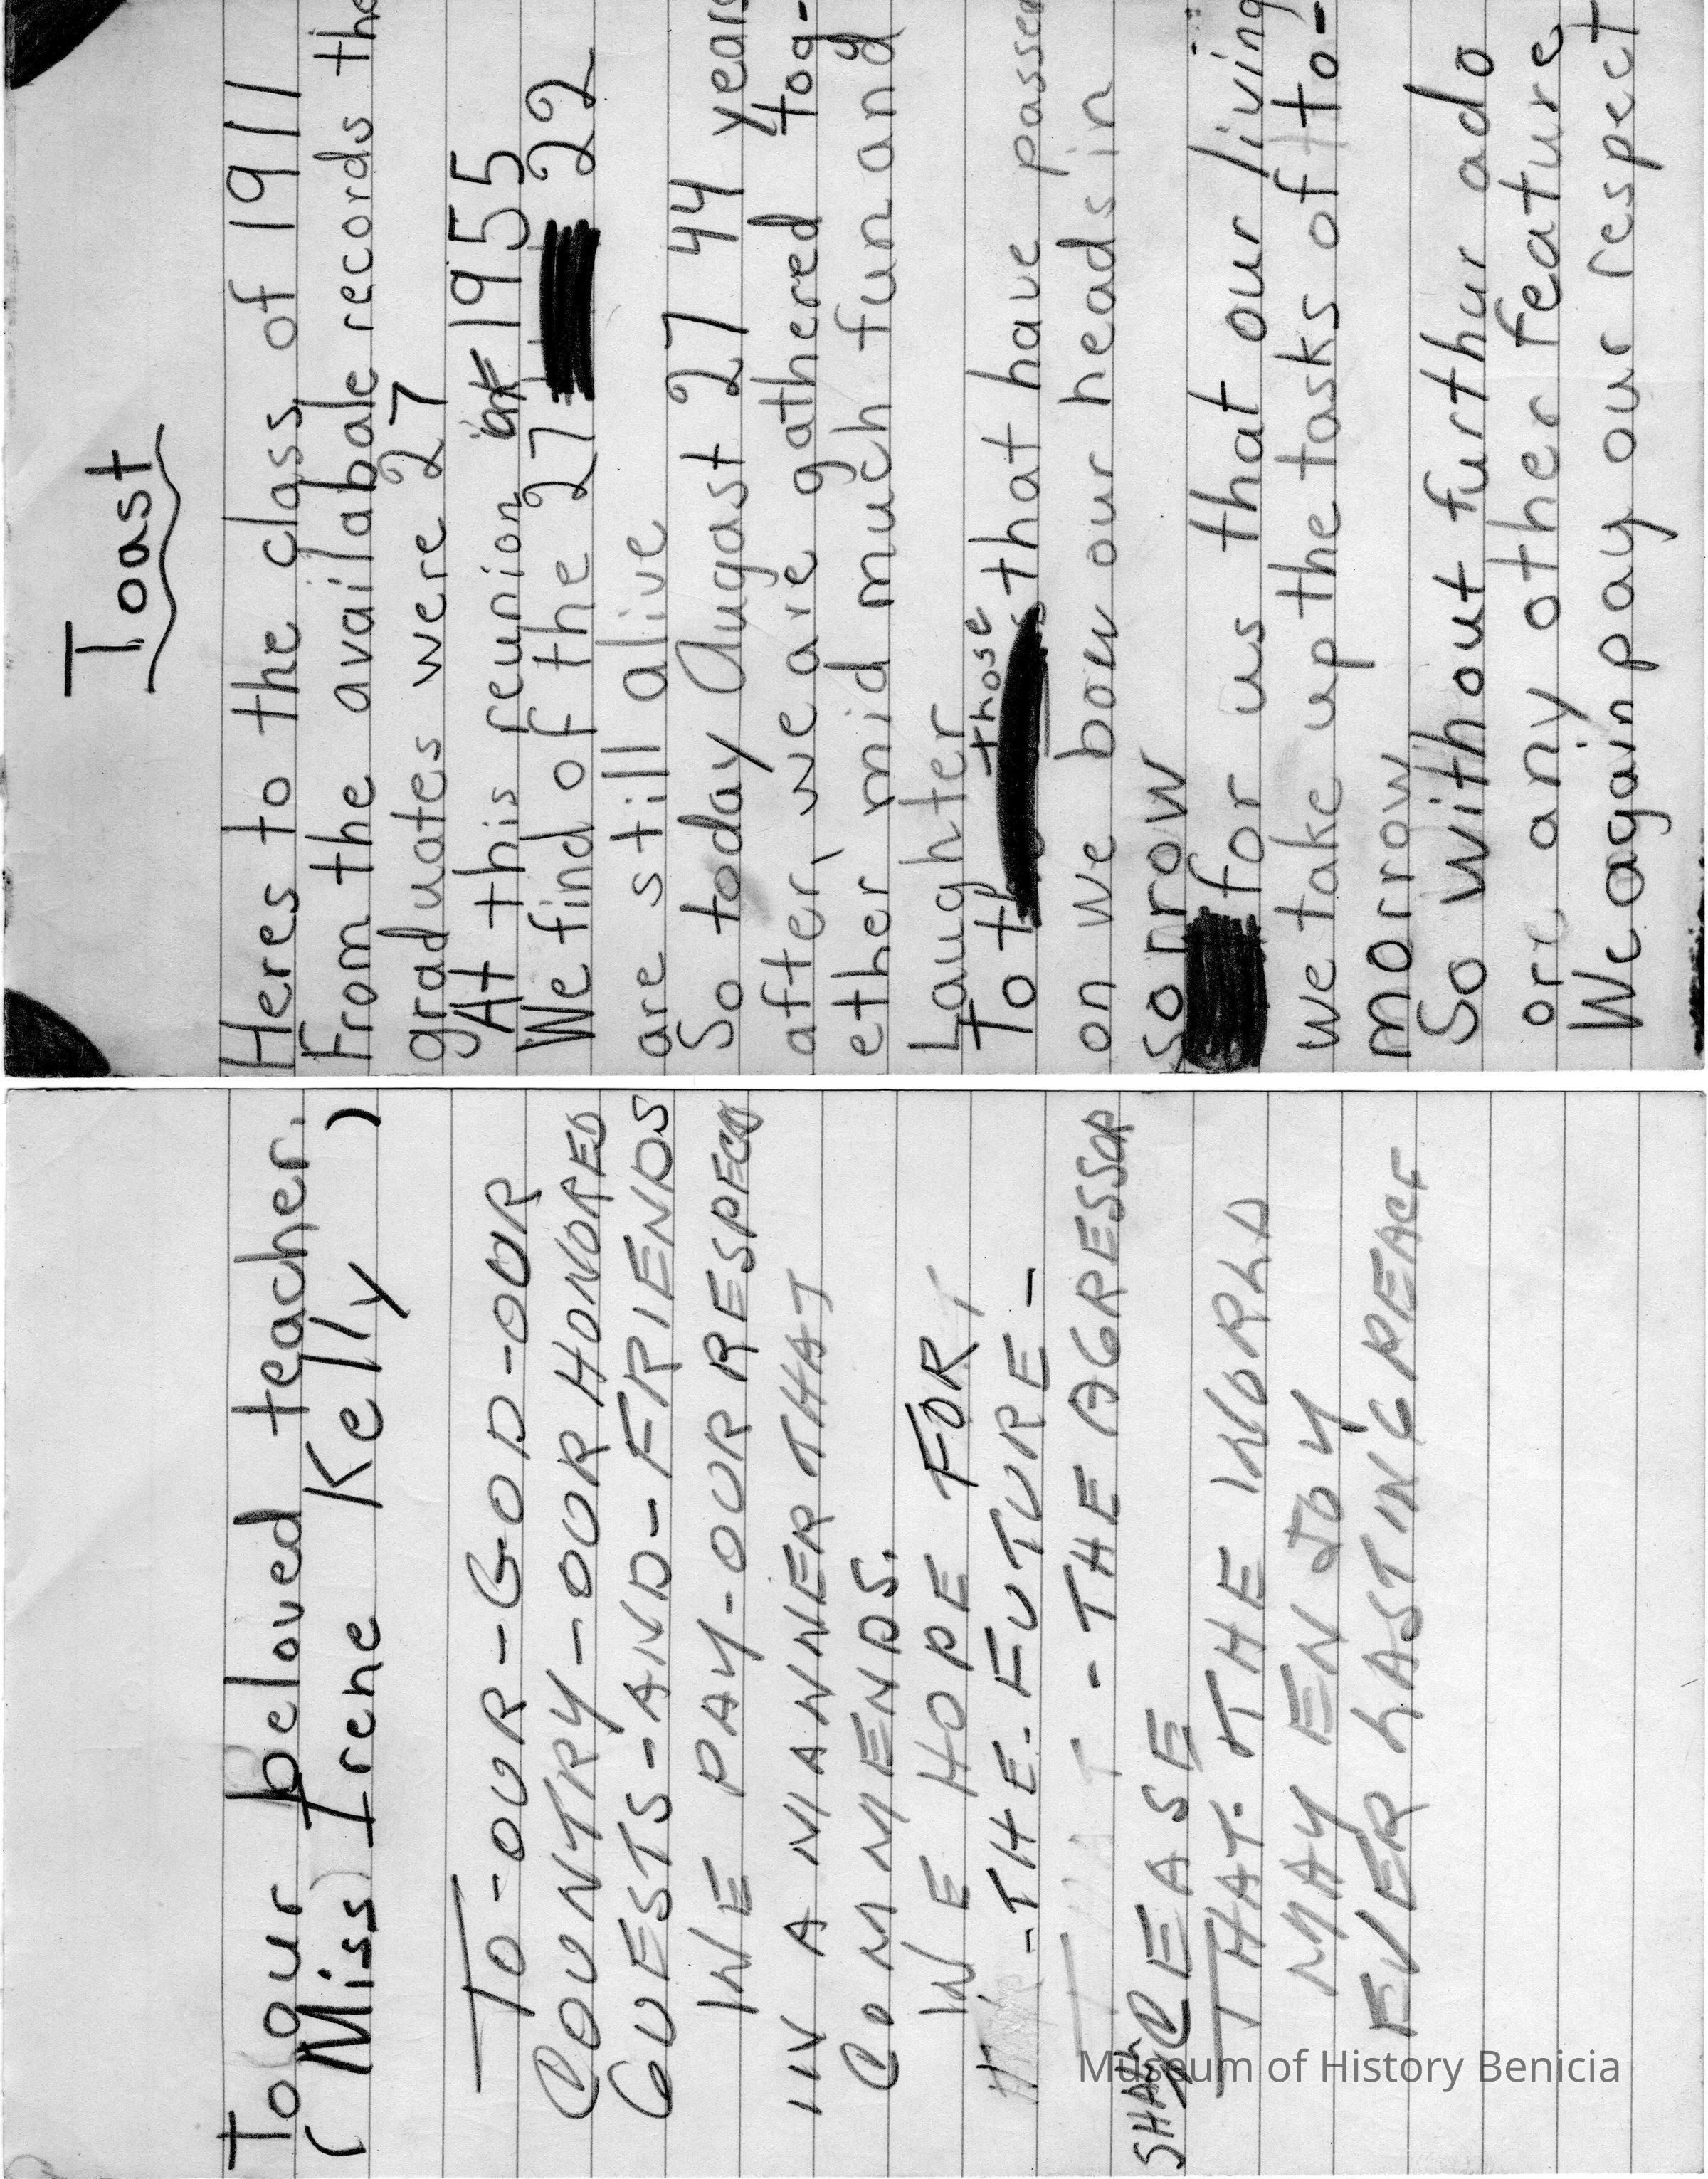 Toast
Heres to the class of 1911
From the availabale records the
graduates were 27
At this reunion in 1955
We find of the 27 22
are still alive
So today Augast 27 44 years
after, we are gathered tog-
ether mid much fun and
Laughter
those
To that have passed
on we bow our heads in
sorrow
for us that our living
we take up the tasks of to-
morrow
So without furthur ado
ore any other feature
We again pay our respect
To our beloved teacher.
(Miss Irene Kelly)
TO-OUR-GOD-OUR
COUNTRY-OUR HONORED
GUESTS-AND-FRIENDS
WE PAY-OUR RESPECTS
IN A MANNER THAT
COMMENDS.
WE HOPE FOR
-THE-FUTURE-
-THE AGRESSOR
SHALL CEASE
THAT. THE WORLD
MAY ENJOY
EVER LASTING PEACE
Museum of History Benicia